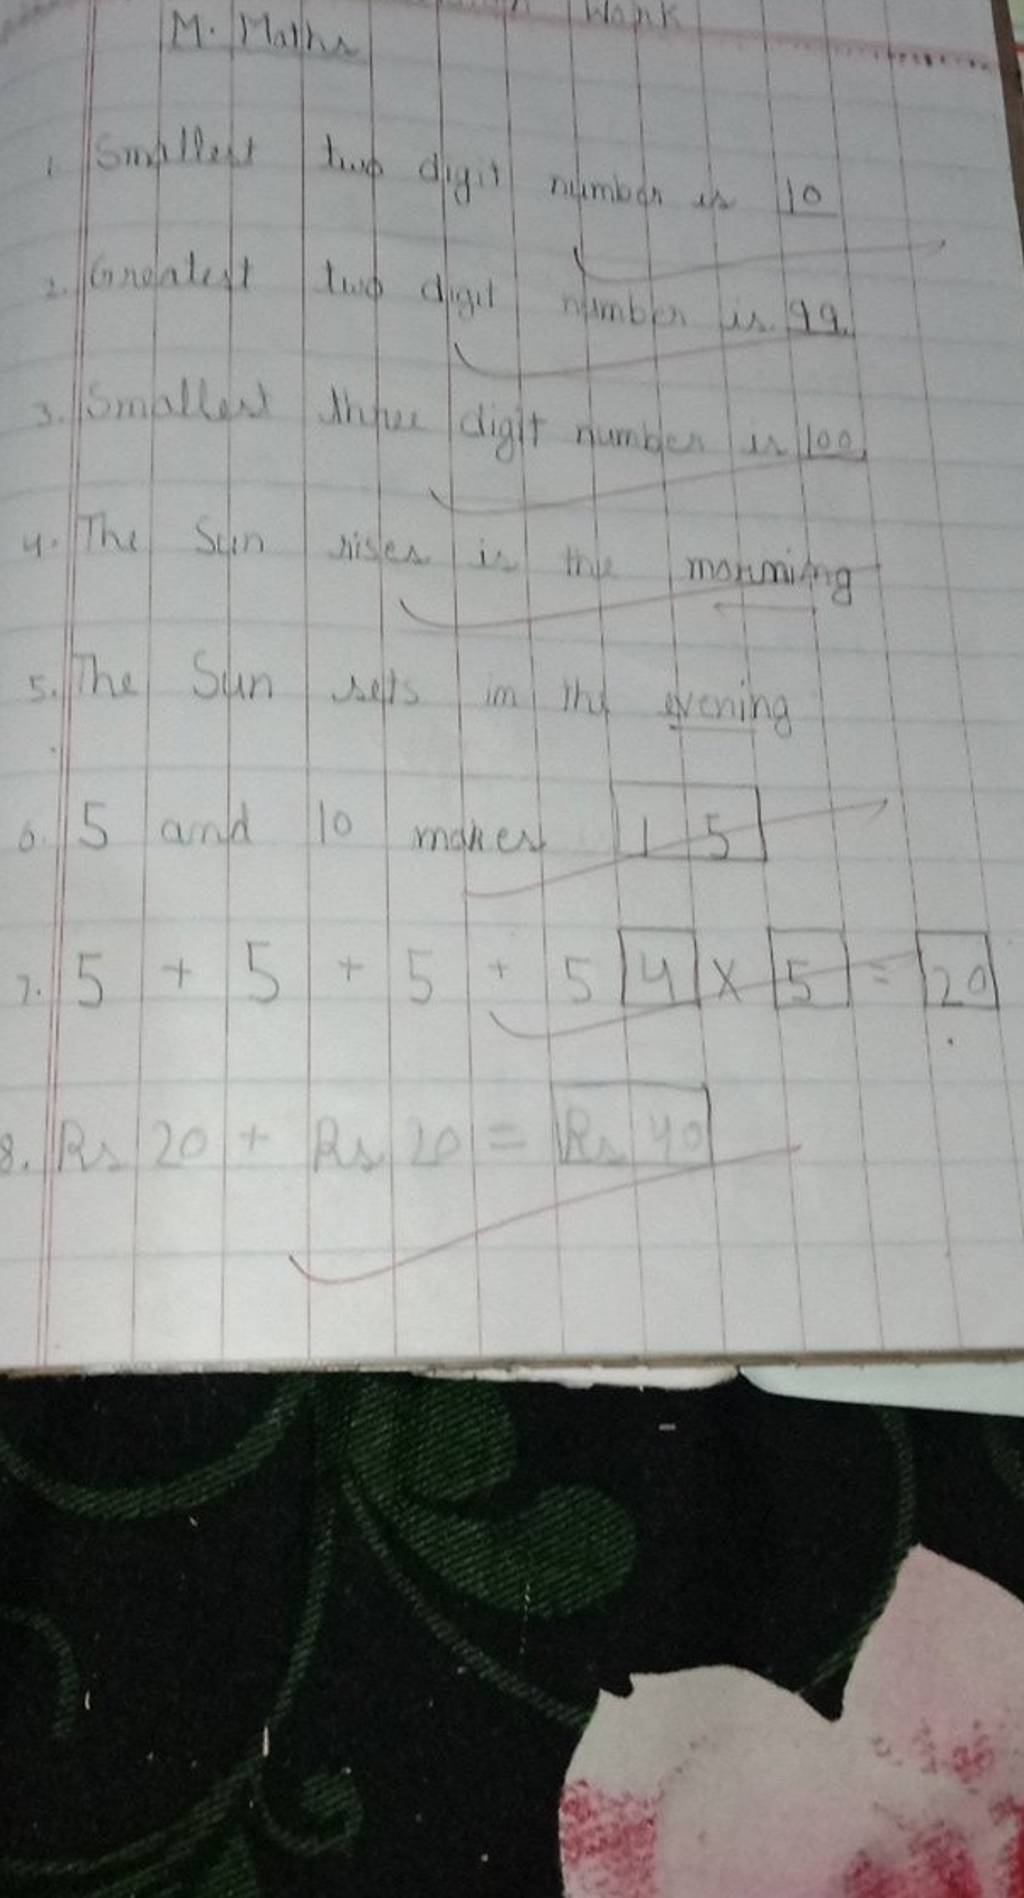 Work
M. Maths
1. Smallest two digit number is 10
2. Greatest two digit number is 99
3. Smallest three digit number is 100
4. The Sun rises is the morning
5. The Sun sets in the evening
6. 5 and 10 makes 15
7. 5 + 5 + 5 + 5 4 x 5 = 20
8. Rs 20 + Rs 20 = Rs 40